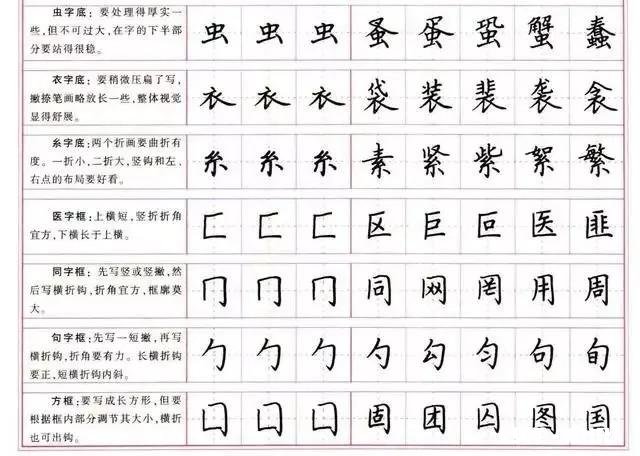 虫字底：要处理得厚实一
些，但不可过大，在字的下半部
分要站得很稳。
虫 虫 虫 蚤 蛋 蛩 蟹 蠢
衣字底：要稍微压扁了写，
撇捺笔画略放长一些，整体视觉
显得舒展。
衣 衣 衣 袋 装 裴 袭 衾
糸字底：两个折画要曲折有
度。一折小，二折大，竖钩和左、
右点的布局要好看。
糸 糸 糸 素 紧 紫 絮 繁
医字框：上横短，竖折折角
宜方，下横长于上横。
匚 匚 匚 区 巨 叵 医 匪
同字框：先写竖或竖撇，然
后写横折钩，折角宜方，框廓莫
大。
冂 冂 冂 同 网 罔 用 周
句字框：先写一短撇，再写
横折钩，折角要有力。长横折钩
要正，短横折钩内斜。
勹 勹 勹 勺 勾 匀 句 旬
方框：要写成长方形，但要
根据框内部分调节其大小，横折
也可出钩。
囗 囗 囗 固 团 囚 图 国